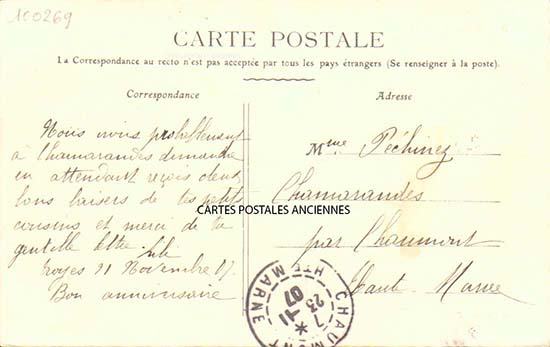 100269
CARTE POSTALE
La Correspondance au recto n'est pas acceptée par tous les pays étrangers (Se renseigner à la poste).
Correspondance
Adresse
Nous irons probablement
à Chamarandes dimanche
en attendant reçois
bons baisers de tes petits
cousins et merci de ta
gentille lettre Lili
Troyes 21 Novembre 07.
Bon anniversaire
Mme Péchinez
Chamarandes
par Chaumont
Haute-Marne
CARTES POSTALES ANCIENNES
CHAUMONT
HTE MARNE
7 * 23 -11
07